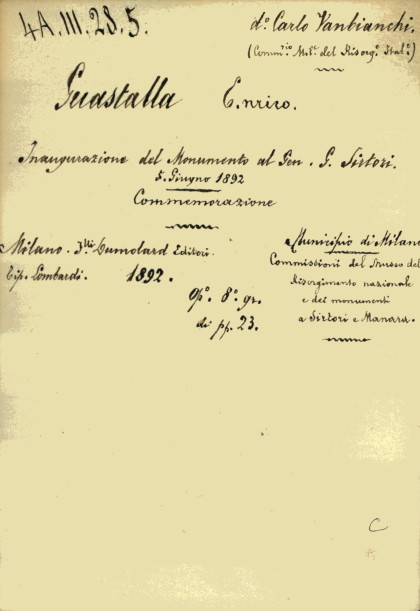 4A.III.28.5.
do. Carlo Vanbianchi.
(Commrio Mil. del Risorgo. Italo.)
Guastalla Enrico.
Inaugurazione del Monumento al Gen. G. Sirtori.
5. Giugno 1892
Commemorazione
Milano. Flli Dumolard Editori.
Tip. Lombardi. 1892.
Opo. 8o. gr.
di pp. 23.
Municipio di Milano
Commissioni del Museo del
Risorgimento nazionale
e dei monumenti
a Sirtori e Manara.
C